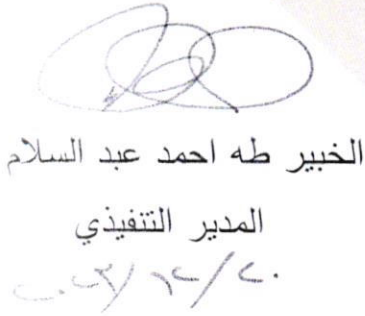 الخبير طه احمد عبد السلام
المدير التنفيذي
٢٠/١٢/٢٠٢٣